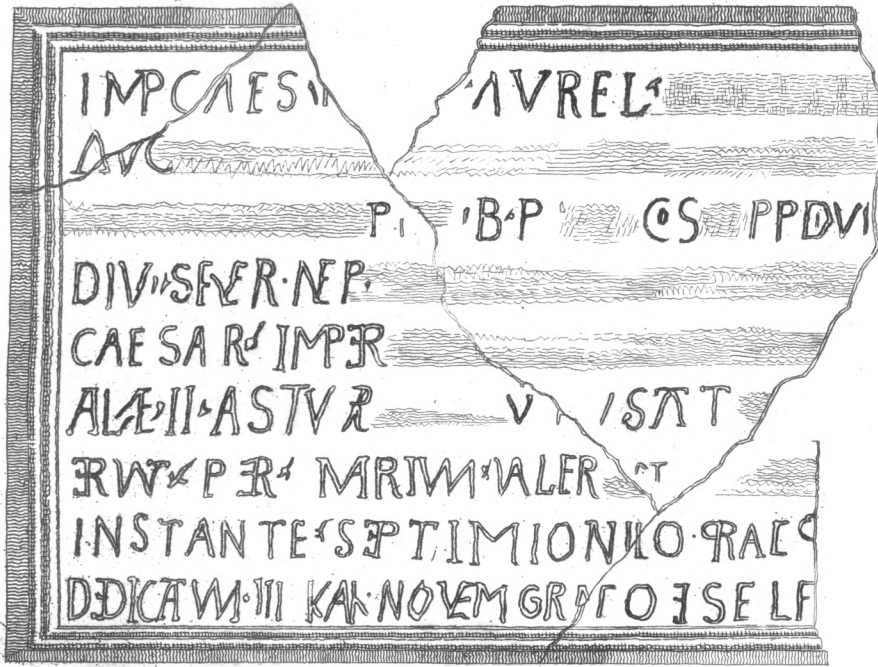 IMP CAES AVREL
AVG
P B·P COS PP DVI
DIVI SEVER·NEP·
CAESAR IMPER
ALAE II·ASTVR V SAT
ERVNT PER MARIVM VALER
INSTANTE SEPTIMIO NILO·PRAE
DEDICATVM·III KAL·NOVEM GRATO ET SELE